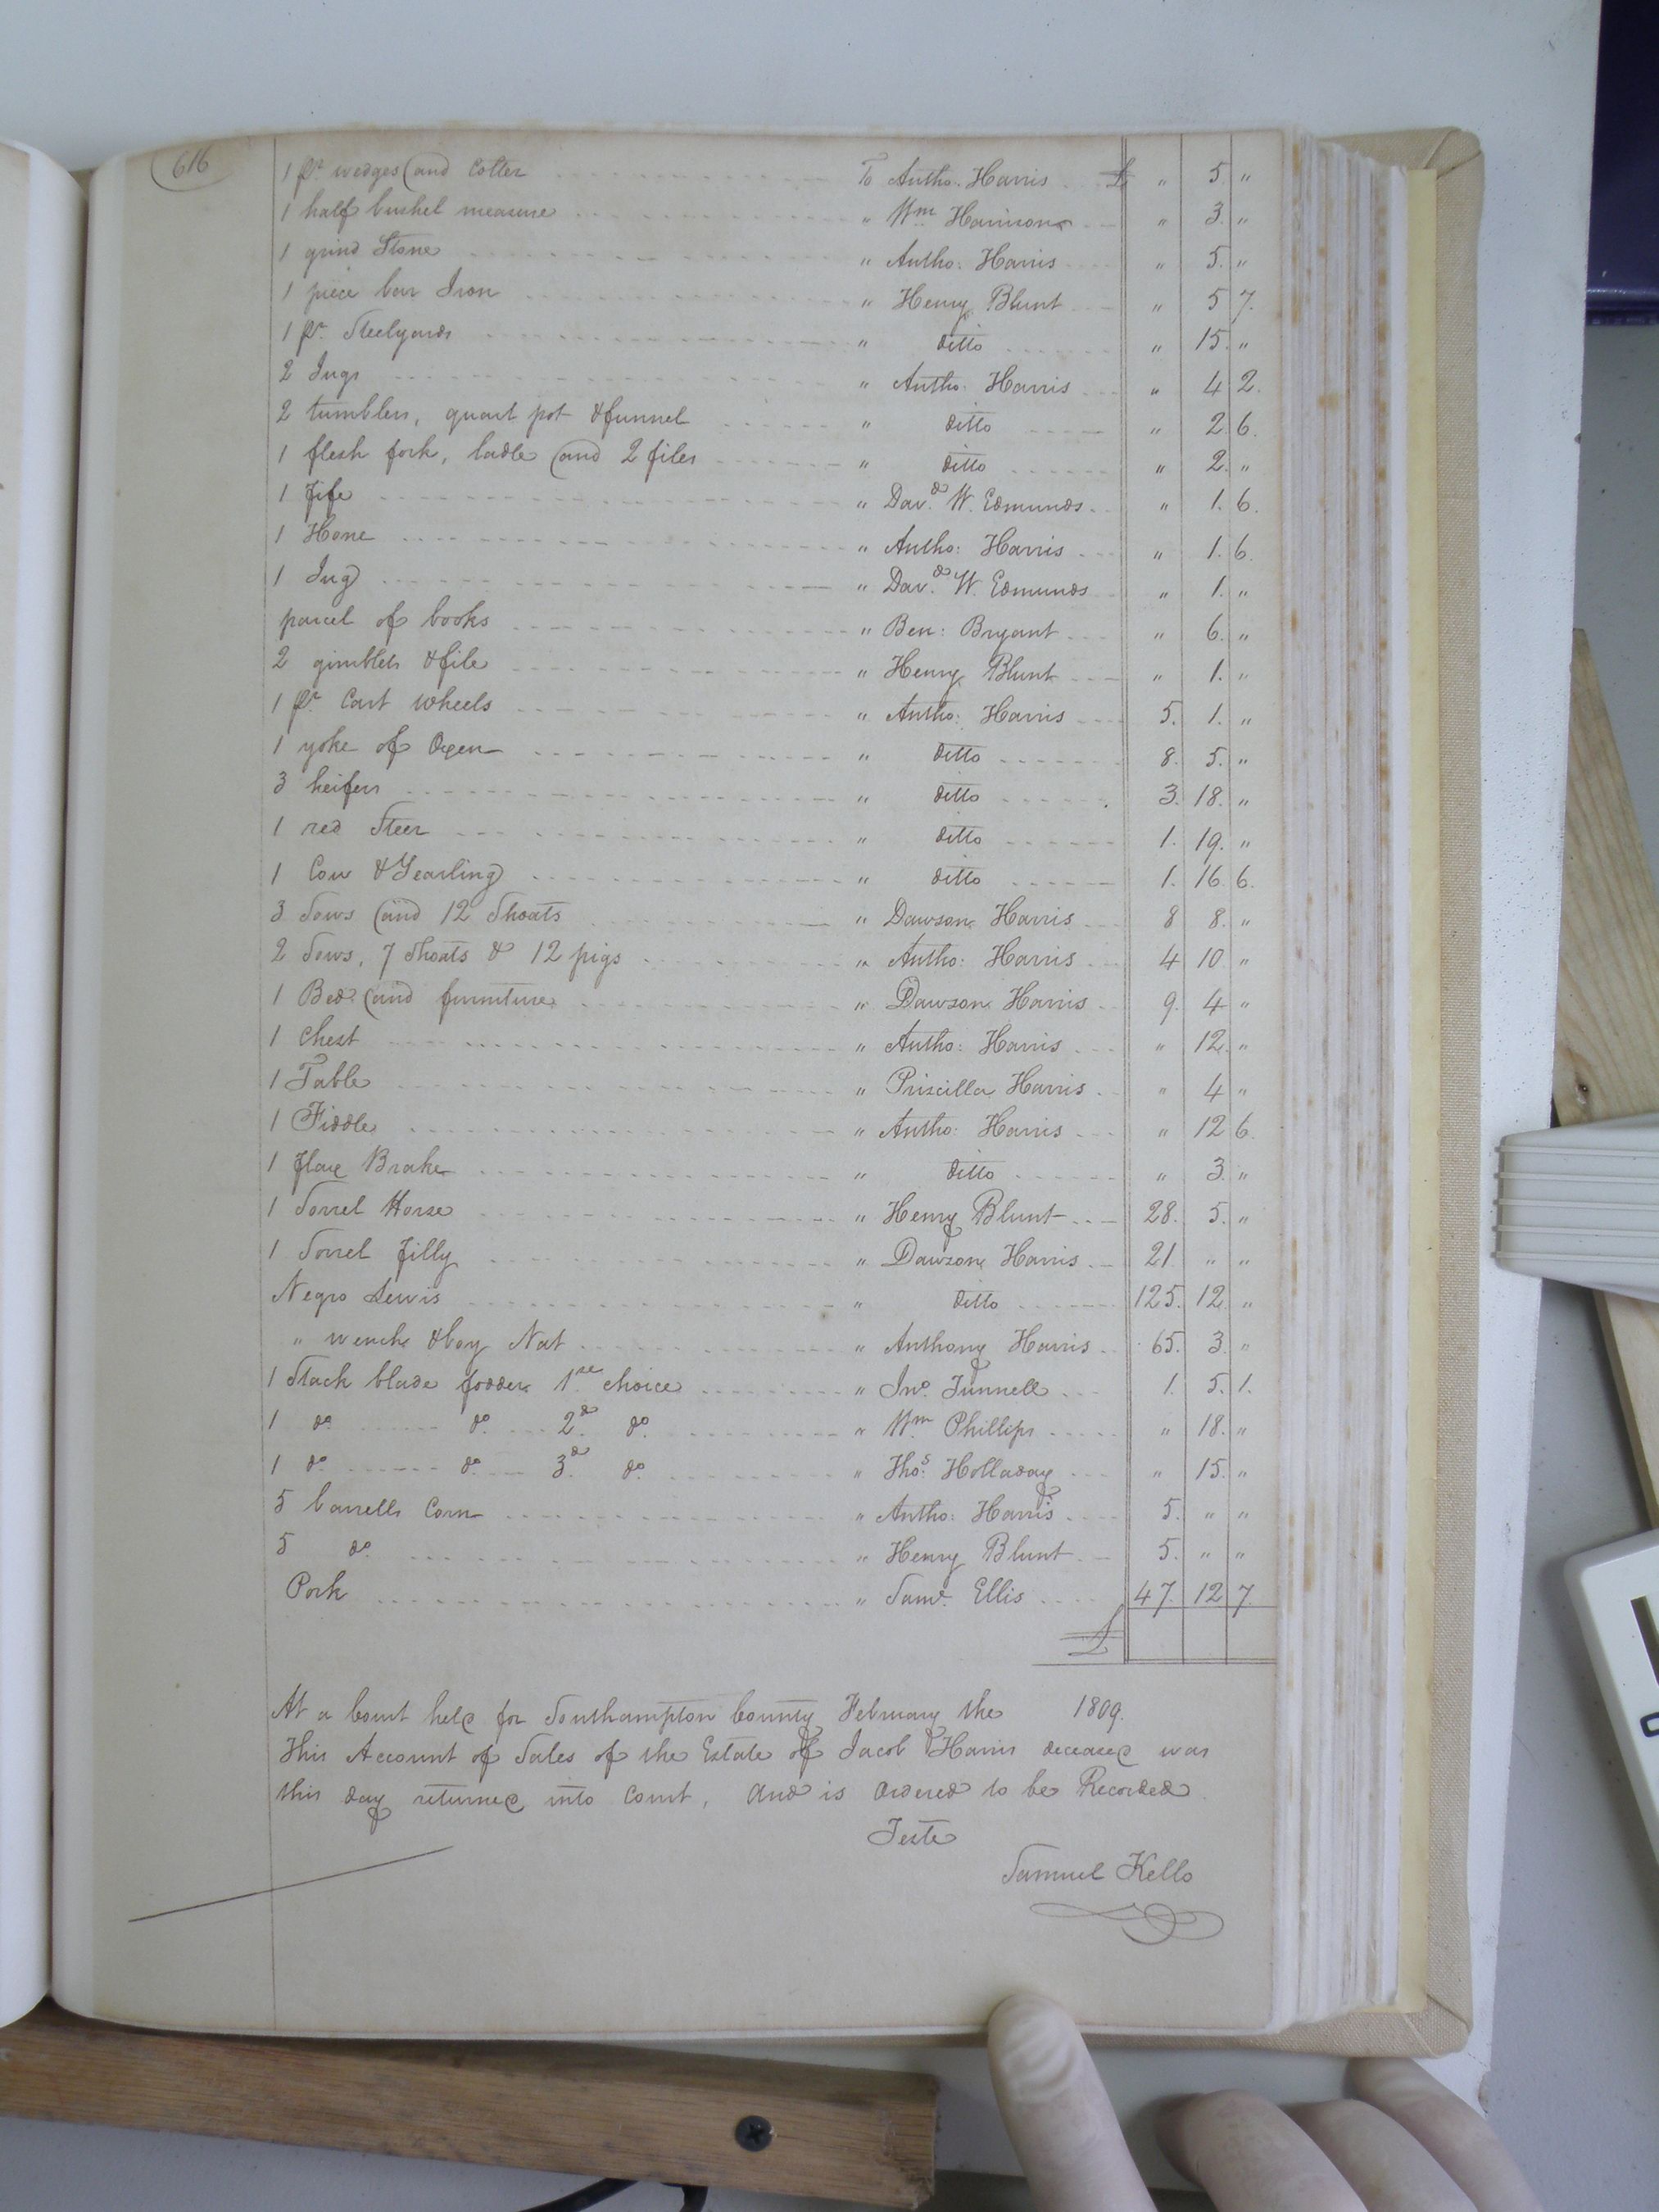 616
1 pr. wedges and Cotter To Antho. Harris £ " 5. "
1 half bushel measure " Wm. Harrison " 3. "
1 grind Stone " Antho: Harris " 5. "
1 piece bar Iron " Henry Blunt " 5 7.
1 pr. Steelyards " ditto " 15. "
2 Jugs " Antho: Harris " 4 2.
2 tumblers, quart pot & funnel " ditto " 2 6.
1 flesh fork, ladle and 2 files " ditto " 2. "
1 fife " Davd. W. Edmunds " 1. 6.
1 Hone " Antho: Harris " 1. 6.
1 Jug " Davd. W. Edmunds " 1. "
parcel of books " Ben: Bryant " 6. "
2 gimblets & file " Henry Blunt " 1. "
1 pr. Cart wheels " Antho: Harris 5. 1. "
1 yoke of Oxen " ditto 8. 5. "
3 heifers " ditto 3. 18. "
1 red Steer " ditto 1. 19. "
1 Cow & Yearling " ditto 1. 16. 6.
3 Sows and 12 Shoats " Dawson Harris 8 8. "
2 Sows, 7 Shoats & 12 pigs " Antho: Harris 4 10 "
1 Bed and furniture " Dawson Harris 9. 4 "
1 Chest " Antho: Harris " 12. "
1 Table " Priscilla Harris " 4 "
1 Fiddle " Antho: Harris " 12 6.
1 flax Brake " ditto " 3. "
1 Sorrel Horse " Henry Blunt 28. 5. "
1 Sorrel filly " Dawson Harris 21. " "
Negro Lewis " ditto 125. 12. "
" wench & boy Nat " Anthony Harris 65. 3. "
1 Stack blade fodder 1st choice " Jno. Tunnell 1. 5. 1.
1 do. do. 2d. do. " Wm. Phillips " 18. "
1 do. do. 3d. do. " Thos. Holladay " 15. "
5 barrells Corn " Antho: Harris 5. " "
5 do. " Henry Blunt 5. " "
Pork " Saml. Ellis 47. 12 7.
£
At a Court held for Southampton County February the 1809.
This Account of Sales of the Estate of Jacob Harris deceased was
this day returned into Court, and is ordered to be Recorded.
Teste
Samuel Kello